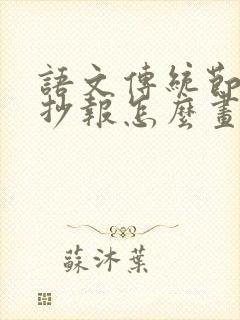 語文傳統節
抄報怎麼畫
蘇沐葉